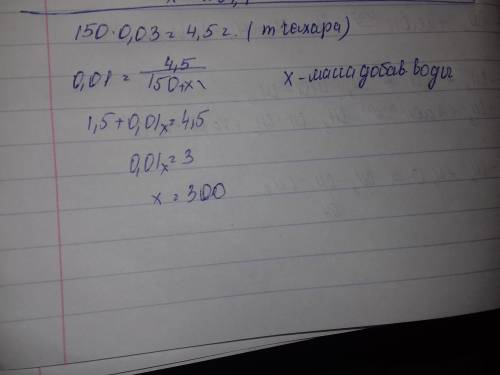 150·0,03=4,5г. (m сахара)
0,01 = 4,5/150+x
x - маса добав. воды
1,5+0,01x=4,5
0,01x=3
x=300